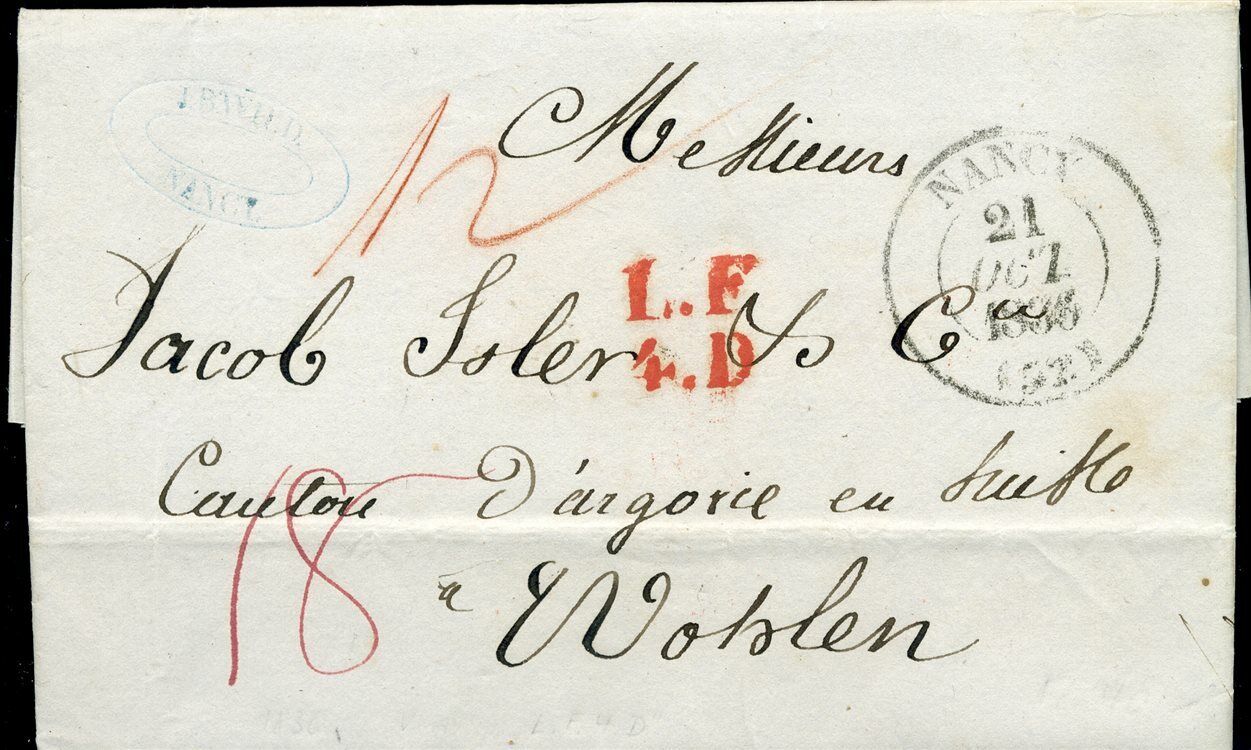 NANCY
12
Messieurs
NANCY
21
OCT
1836
(52)
L.F
4.D
Jacob Isler & Cie
Canton D'argovie en Suisse
18
a Wohlen
1836
L F 4 D